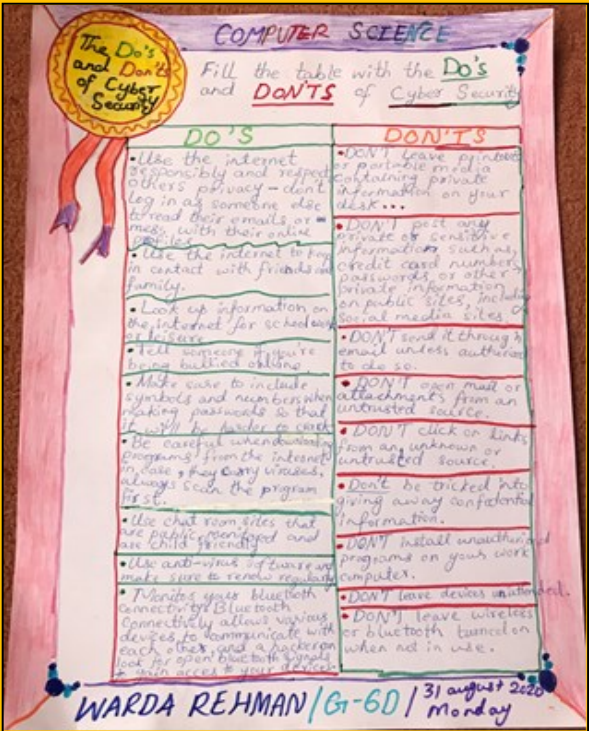 COMPUTER SCIENCE
The Do's
and Don'ts
of Cyber
Security
Fill the table with the Do's
and DON'TS of Cyber Security
DO'S
• Use the internet
responsibly and respect
others privacy - don't
log in as someone else
to read their emails or
mess with their online
profiles
• Use the internet to keep
in contact with friends and
family.
• Look up information on
the internet for school work
or leisure
• Tell someone if you're
being bullied online
• Make sure to include
symbols and numbers when
making passwords so that
it will be harder to crack
• Be careful when downloading
programs from the internet
in case, they carry viruses,
always scan the program
first.
• Use chat room sites that
are public, monitored and
are child friendly
• Use anti-virus software and
make sure to renew regularly
• Monitor your bluetooth
connectivity. Bluetooth
Connectivity allows various
devices to communicate with
each other, and a hacker can
look for open bluetooth signals
to gain acces to your devices.
DON'TS
• DON'T leave printouts
or portable media
containing private
information on your
desk...
• DON'T post any
private or sensitive
information, such as,
credit card numbers
passwords or other
private information
on public sites, including
social media sites
• DON'T send it through
email unless authorized
to do so.
• DON'T open mail or
attachments from an
untrusted source.
• DON'T click on links
from an unknown or
untrusted source.
• Don't be tricked into
giving away confidential
information.
• DON'T install unauthorized
programs on your work
computer.
• DON'T leave devices unattended.
• DON'T leave wireless
or bluetooth turned on
when not in use.
WARDA REHMAN/G-6D/31 august 2020
Monday